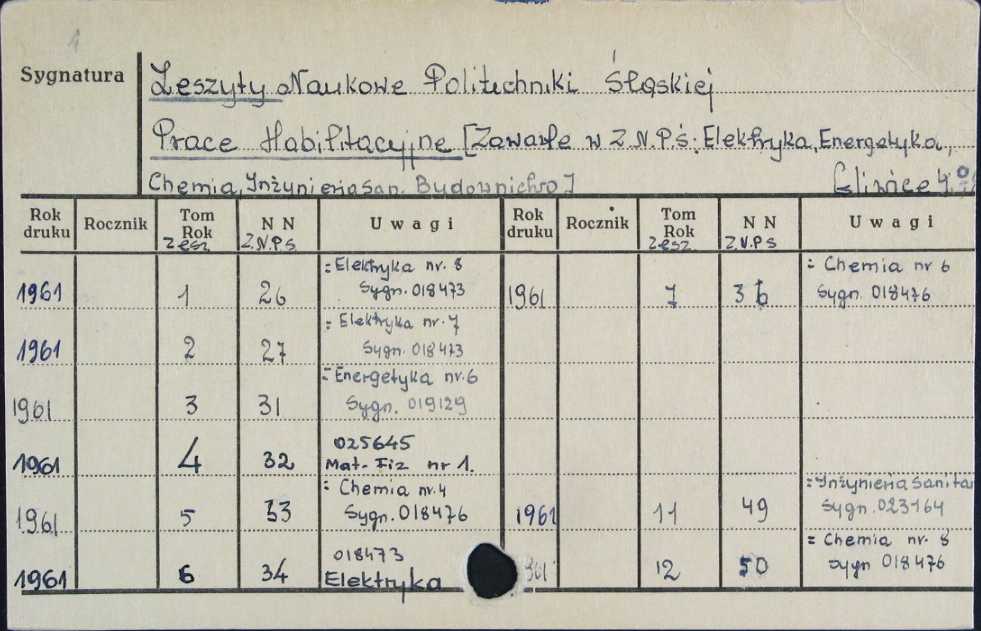 Sygnatura
Zeszyty Naukowe Politechniki Śląskiej
Prace Habilitacyjne [Zawarte w Z.N.P.Ś: Elektryka, Energetyka,
Chemia, Inżynieria San. Budownictwo] Gliwice 4.
Rok druku Rocznik Tom Rok Zesz N N Z.N.P.S Uwagi Rok druku Rocznik Tom Rok Zesz N N Z.N.P.S Uwagi
1961 1 26 = Elektryka nr. 8 Sygn. 018473 1961 7 36 = Chemia nr 6 Sygn. 018476
1961 2 27 = Elektryka nr. 7 Sygn. 018473
1961 3 31 = Energetyka nr. 6 Sygn. 019129
1961 4 32 025645 Mat-Fiz nr 1.
1961 5 33 = Chemia nr. 4 Sygn. 018476 1961 11 49 = Inżynieria Sanitar Sygn. 023164
1961 6 34 018473 Elektryka 961 12 50 = Chemia nr. 8 Sygn 018476